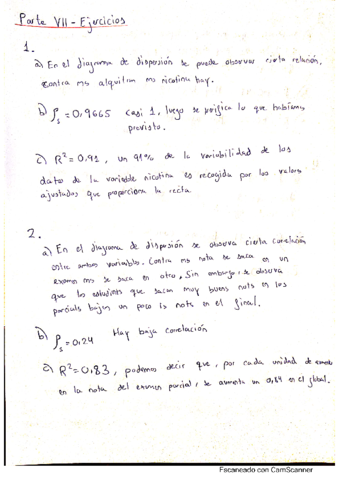 Parte VII - Ejercicios
1.
a) En el diagrama de dispersión se puede observar cierta relación,
contra ms alquitran ms nicotina hay.
b) ρs = 0,9665 casi 1, luego se verifica lo que habíamos
previsto.
c) R² = 0.91, un 91% de la variabilidad de los
datos de la variable nicotina es recogida por los valores
ajustados que proporciona la recta.
2.
a) En el diagrama de dispersión se observa cierta correlación
entre ambas variables. Contra ms nota se saca en un
examen ms se saca en otro, Sin embargo, se observa
que los estudiants que sacan muy buena nota en los
parcials bajan un poco la nota en el final.
b) ρs = 0,24 Hay baja correlación
c) R² = 0,83, podemos decir que, por cada unidad de
en la nota del examen parcial, se aumenta un en el global.
Escaneado con CamScanner